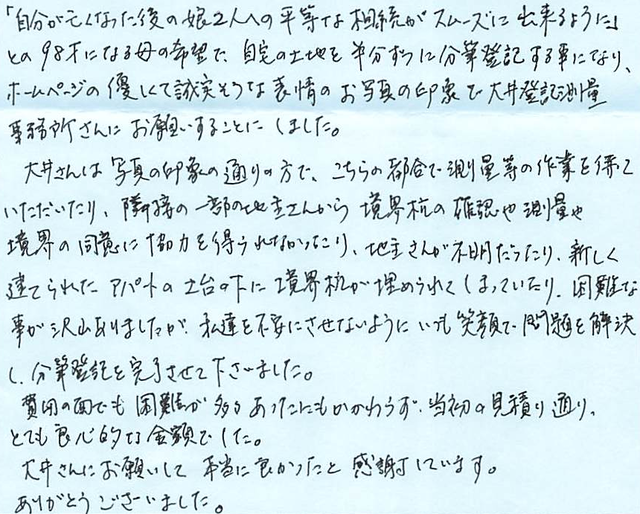 「自分が亡くなった後の娘2人への平等な相続がスムーズに出来るように」
との98才になる母の希望で、自宅の土地を半分ずつに分筆登記する事になり、
ホームページの優しくて誠実そうな表情のお写真の印象で大井登記測量
事務所さんにお願いすることにしました。
大井さんは写真の印象の通りの方で、こちらの都合で測量等の作業を待って
いただいたり、隣接の一部の地主さんから境界杭の確認や測量や
境界の同意に協力を得られなかったり、地主さんが不明だったり、新しく
建てられたアパートの土台の下に境界杭が埋められてしまっていたり、困難な
事が沢山ありましたが、私達を不安にさせないようにいつも笑顔で問題を解決
し、分筆登記を完了させて下さいました。
費用の面でも困難が多々あったにもかかわらず、当初の見積り通り、
とても良心的な金額でした。
大井さんにお願いして本当に良かったと感謝しています。
ありがとうございました。